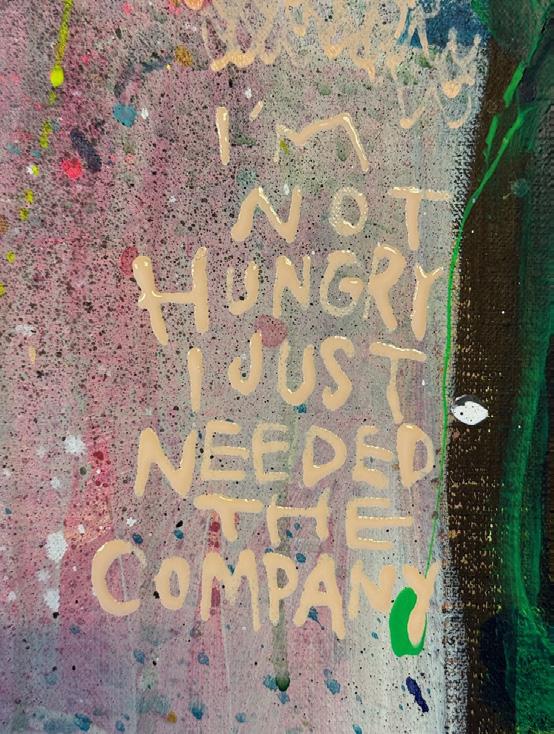 I'M
NOT
HUNGRY
I JUST
NEEDED
THE
COMPANY